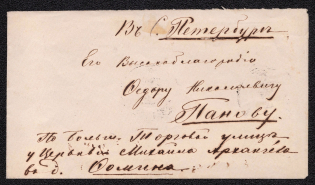 Въ С. Петербургъ
Его Высокоблагородію
Федору Николаевичу
Панову.
По больш. Торговой улицѣ
у Церкви Михаила Архангела
въ д. Фомина